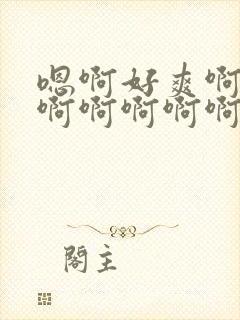 嗯啊好爽啊
啊啊啊啊啊
閣主